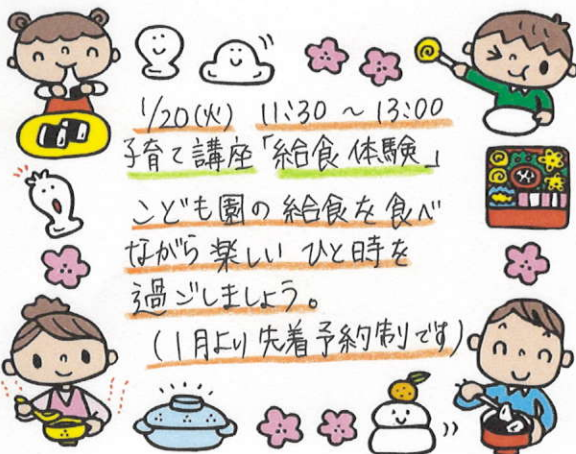 1/20(火) 11:30 ~ 13:00
子育て講座「給食体験」
こども園の給食を食べ
ながら楽しいひと時を
過ごしましょう。
(1月より先着予約制です)